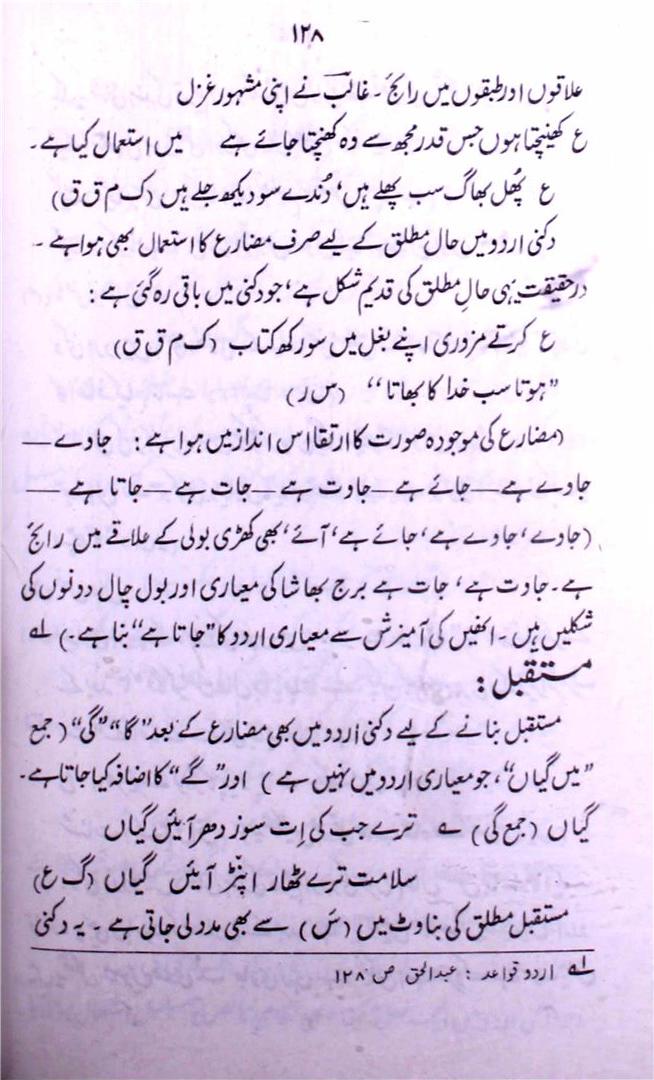 ۱۲۸
علاقوں اور طبقوں میں رائج۔ غالبؔ نے اپنی مشہور غزل
ع کھینچتا ہوں جس قدر مجھ سے وہ کھنچتا جائے ہے میں استعمال کیا ہے۔
ع پُھل بھاگ سب پھلے ہیں، دُندے سو دیکھ جلے ہیں (ک م ق ق)
دکنی اردو میں حال مطلق کے لیے صرف مضارع کا استعمال بھی ہوا ہے۔
درحقیقت یہی حالِ مطلق کی قدیم شکل ہے، جو دکنی میں باقی رہ گئی ہے:
ع کرتے مزوری اپنے بغل میں سو رکھ کتاب (ک م ق ق)
"ہوتا سب خدا کا بھاتا" (س ر)
(مضارع کی موجودہ صورت کا ارتقا اس انداز میں ہوا ہے: جاوے —
جاوے ہے — جائے ہے — جاوت ہے — جات ہے — جاتا ہے —
(جاوے، جاوے ہے، جائے ہے، آئے، بھی کھڑی بولی کے علاقے میں رائج
ہے۔ جاوت ہے، جات ہے برج بھاشا کی معیاری اور بول چال دونوں کی
شکلیں ہیں۔ انھیں کی آمیزش سے معیاری اردو کا "جاتا ہے" بنا ہے۔) ؂۱
مستقبل:
مستقبل بنانے کے لیے دکنی اردو میں بھی مضارع کے بعد "گا" "گی" (جمع
"میں گیاں"، جو معیاری اردو میں نہیں ہے) اور "گے" کا اضافہ کیا جاتا ہے۔
گیاں (جمع گی) ؂ ترے جب کی اِت سوز دھر آئیں گیاں
سلامت ترے ٹھار اپنڑ آئیں گیاں (گ ع)
مستقبل مطلق کی بناوٹ میں (سَ) سے بھی مدد لی جاتی ہے۔ یہ دکنی
؂۱ اردو قواعد: عبدالحق ص ۱۲۸